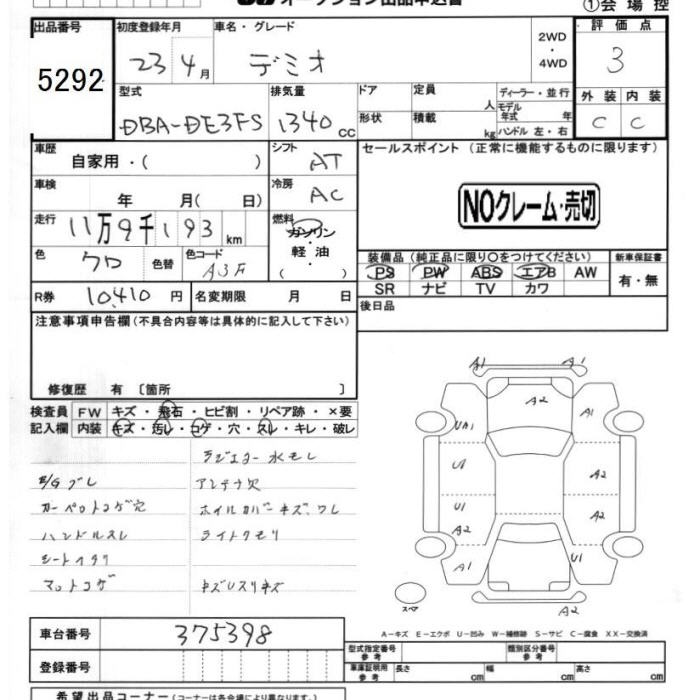 オークション出品申込書
①会場控
出品番号 初度登録年月 車名・グレード 2WD・4WD 評価点
5292 23年4月 デミオ 3
型式 排気量 ドア 定員 人 ディーラー・並行 外装 内装
DBA-DE3FS 1340cc 形状 積載 kg モデル年式 年 C C
ハンドル 左・右
車歴 自家用・( ) シフト AT セールスポイント(正常に機能するものに限ります)
車検 年 月( 日) 冷房 AC NOクレーム・売切
走行 11万9千193km 燃料 ガソリン・軽油・( )
色 クロ 色替 色コード A3F 装備品(純正品に限り○をつけてください) 新車保証書
PS PW ABS エアB AW 有・無
SR ナビ TV カワ
R券 10,410円 名変期限 月 日 後日品
注意事項申告欄(不具合内容等は具体的に記入して下さい)
修復歴 有 〔箇所 〕
検査員記入欄 FW キズ・飛石・ヒビ割・リペア跡・×要
内装 キズ・汚レ・コゲ・穴・スレ・キレ・破レ
ラジエター水モレ
E/Gブレ アンテナ欠
カーペットコゲ穴 ホイルカバーキズ、ワレ
ハンドルスレ ライトクモリ
シートイタミ
マットコゲ キズレスリキズ
A1 A1
A2
UA1 A1
U1 A2
U1 A2 A2
A1 U1
スペア A2
A−キズ E−エクボ U−凹み W−補修跡 S−サビ C−腐食 XX−交換済
車台番号 375398
登録番号
型式指定番号 参考 類別区分番号 参考
車庫証明用 参考 長さ cm 幅 cm 高さ cm
希望出品コーナー(コーナーは各会場により異なります)